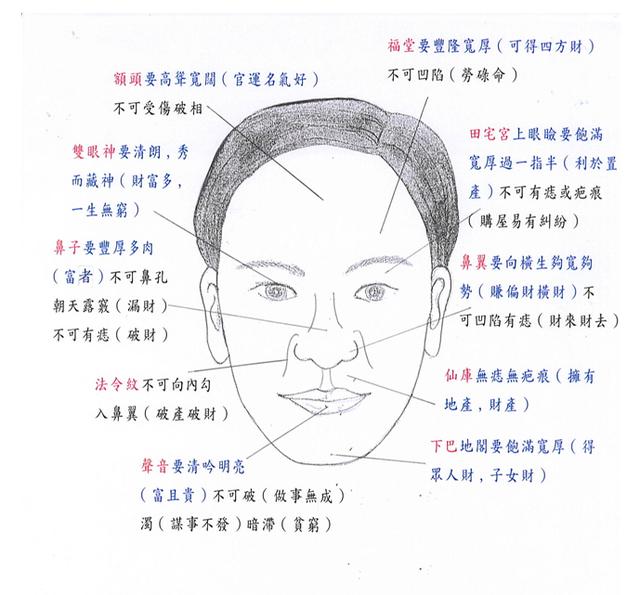 福堂要豐隆寬厚(可得四方財)
不可凹陷(勞碌命)
額頭要高聳寬闊(官運名氣好)
不可受傷破相
田宅宮上眼瞼要飽滿
寬厚過一指半(利於置
產)不可有痣或疤痕
(購屋易有糾紛)
雙眼神要清朗,秀
而藏神(財富多,
一生無窮)
鼻子要豐厚多肉
(富者)不可鼻孔
朝天露竅(漏財)
不可有痣(破財)
鼻翼要向橫生夠寬夠
勢(賺偏財橫財)不
可凹陷有痣(財來財去)
法令紋不可向內勾
入鼻翼(破產破財)
仙庫無痣無疤痕(擁有
地產,財產)
下巴地閣要飽滿寬厚(得
眾人財,子女財)
聲音要清吟明亮
(富且貴)不可破(做事無成)
濁(謀事不發)暗滯(貧窮)